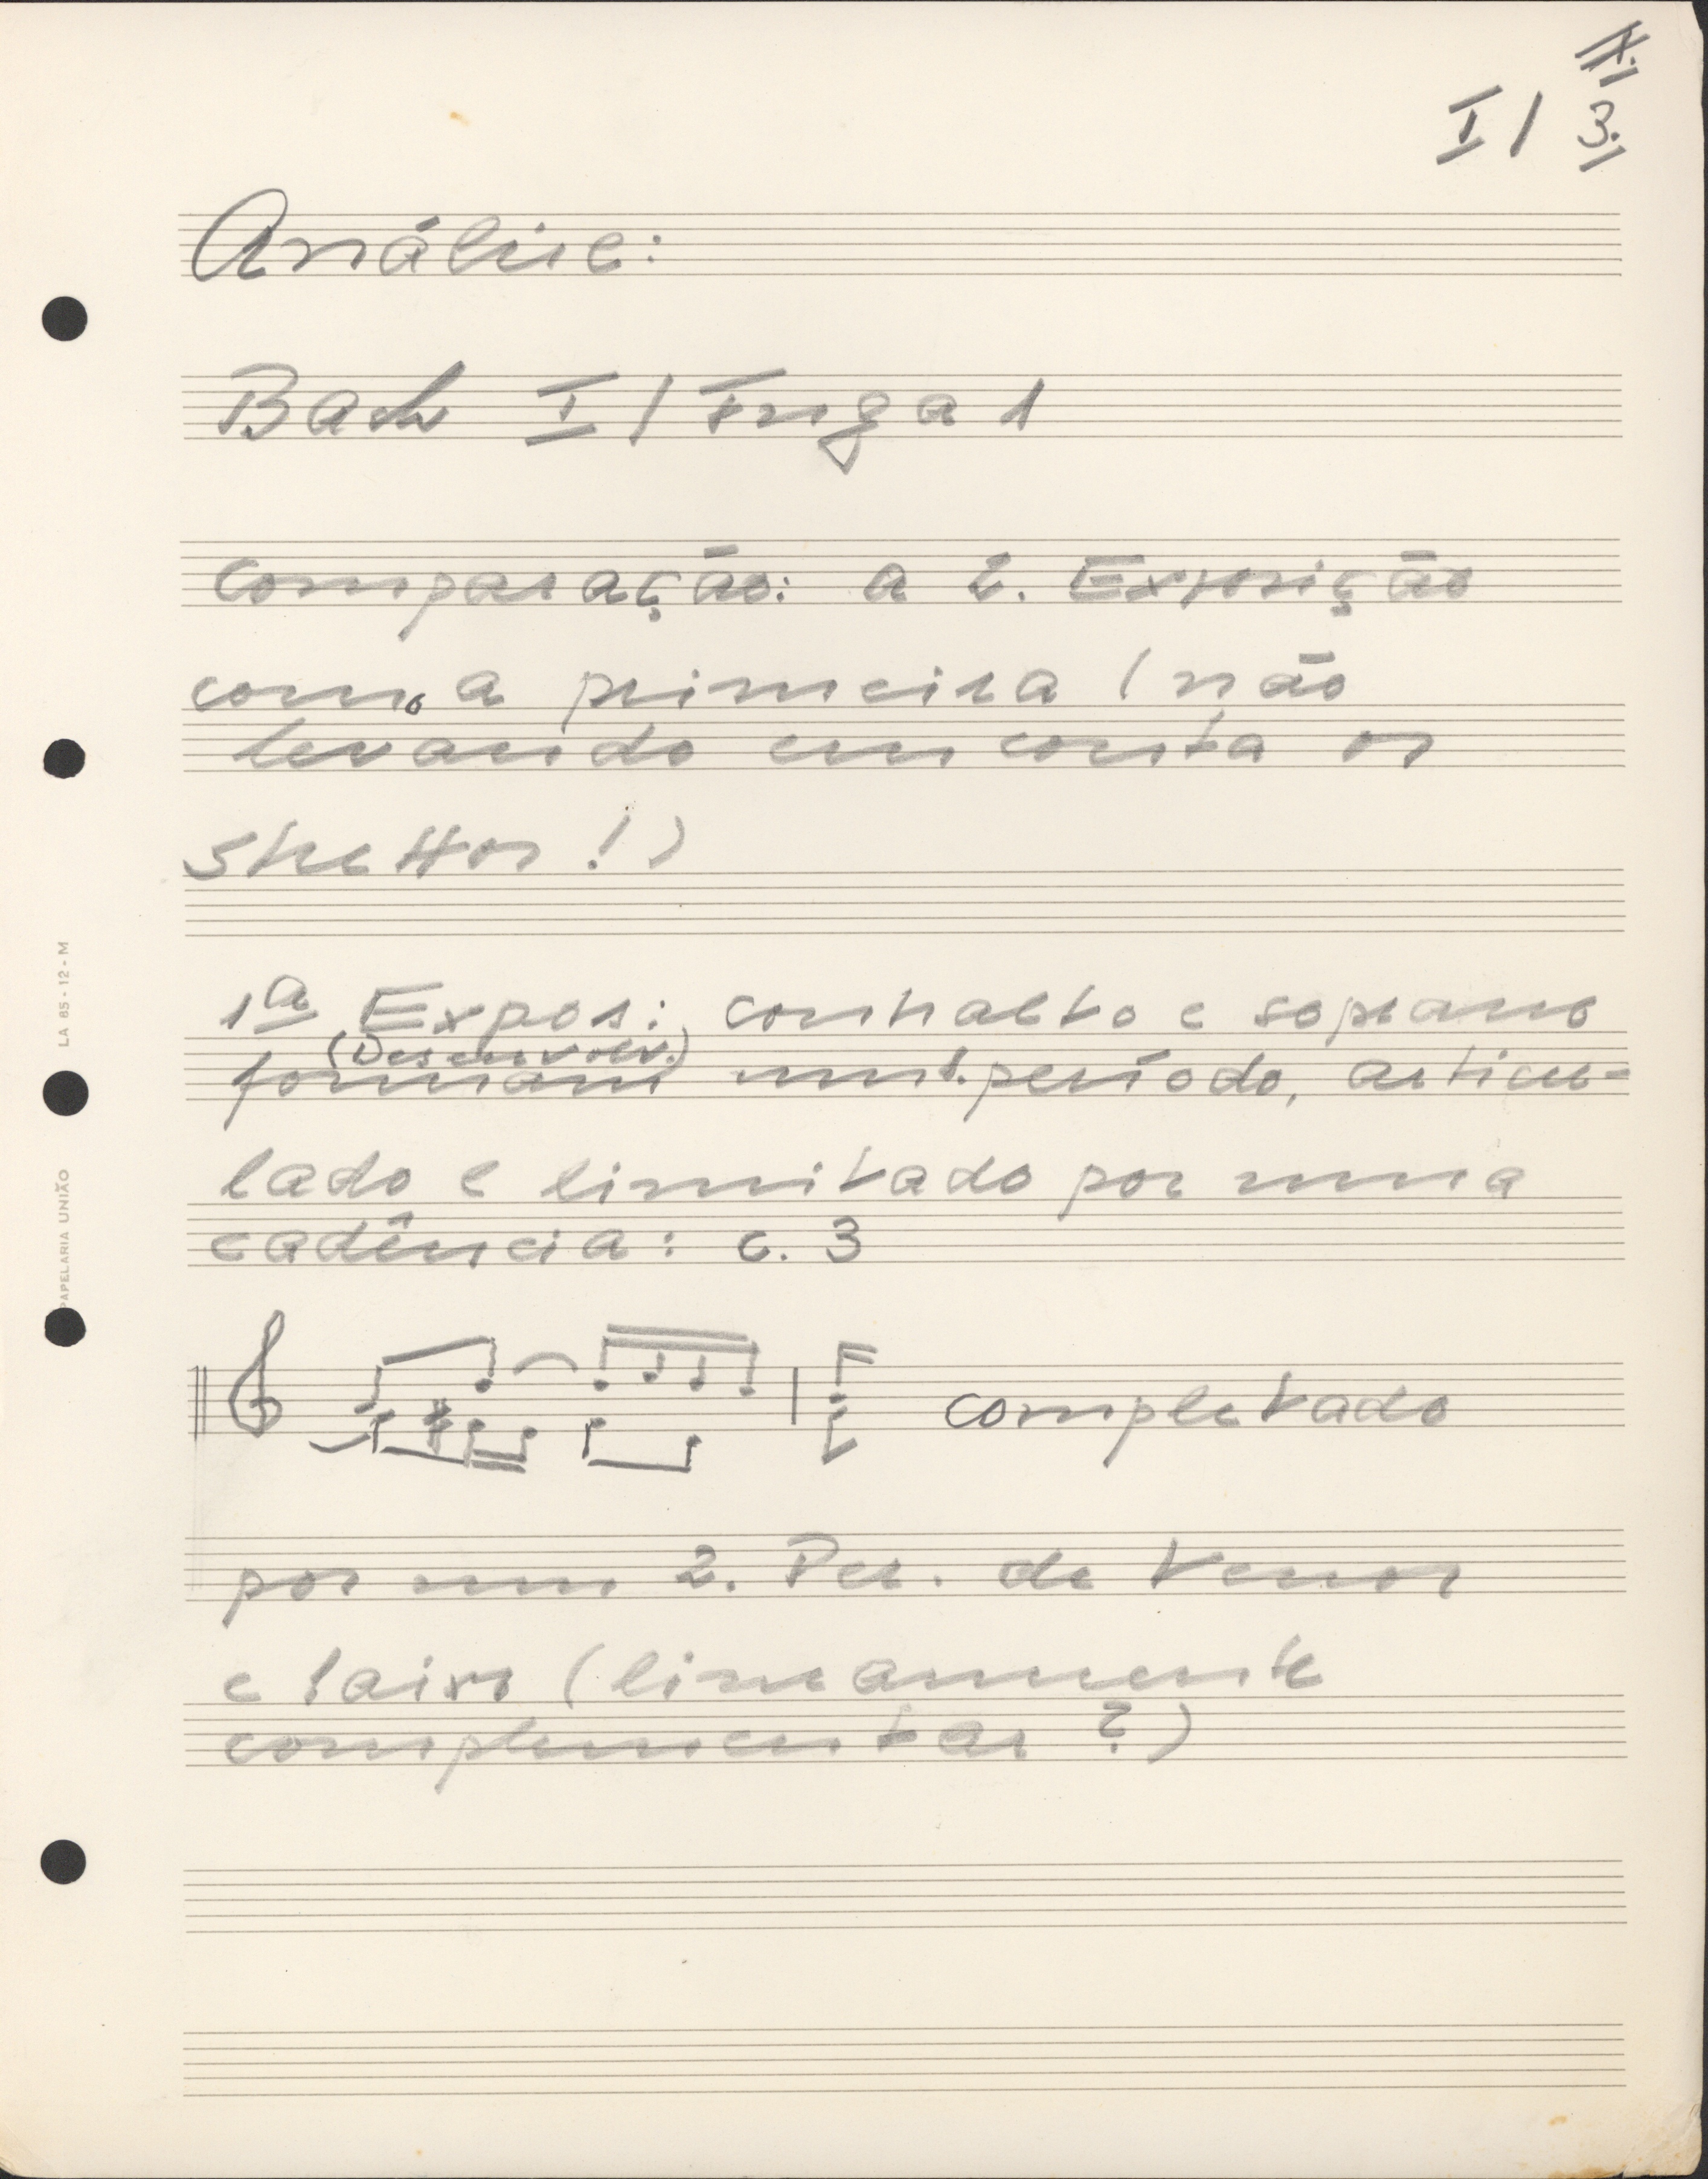 I/
3.
Análise:
Bach I/Fuga 1
Comparação: a 2. Exposição
com a primeira (não
levando em conta os
strettos!)
1ª Expos: contralto e soprano
(Desenvolv.)
formam um 1. período, articu-
lado e limitado por uma
cadência: c. 3
completado
por um 2. Per. de tenor
e baixo (lineamente
complementar?)
LA 65-12-M
PAPELARIA UNIÃO